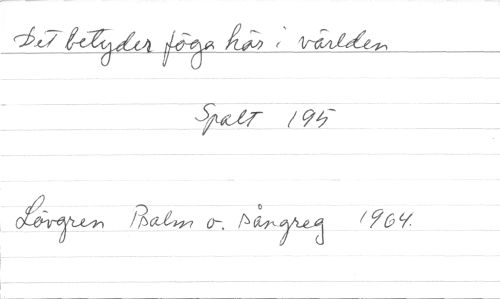 Det betyder föga här i världen
Spalt 195
Lövgren Psalm o. sångreg 1964.